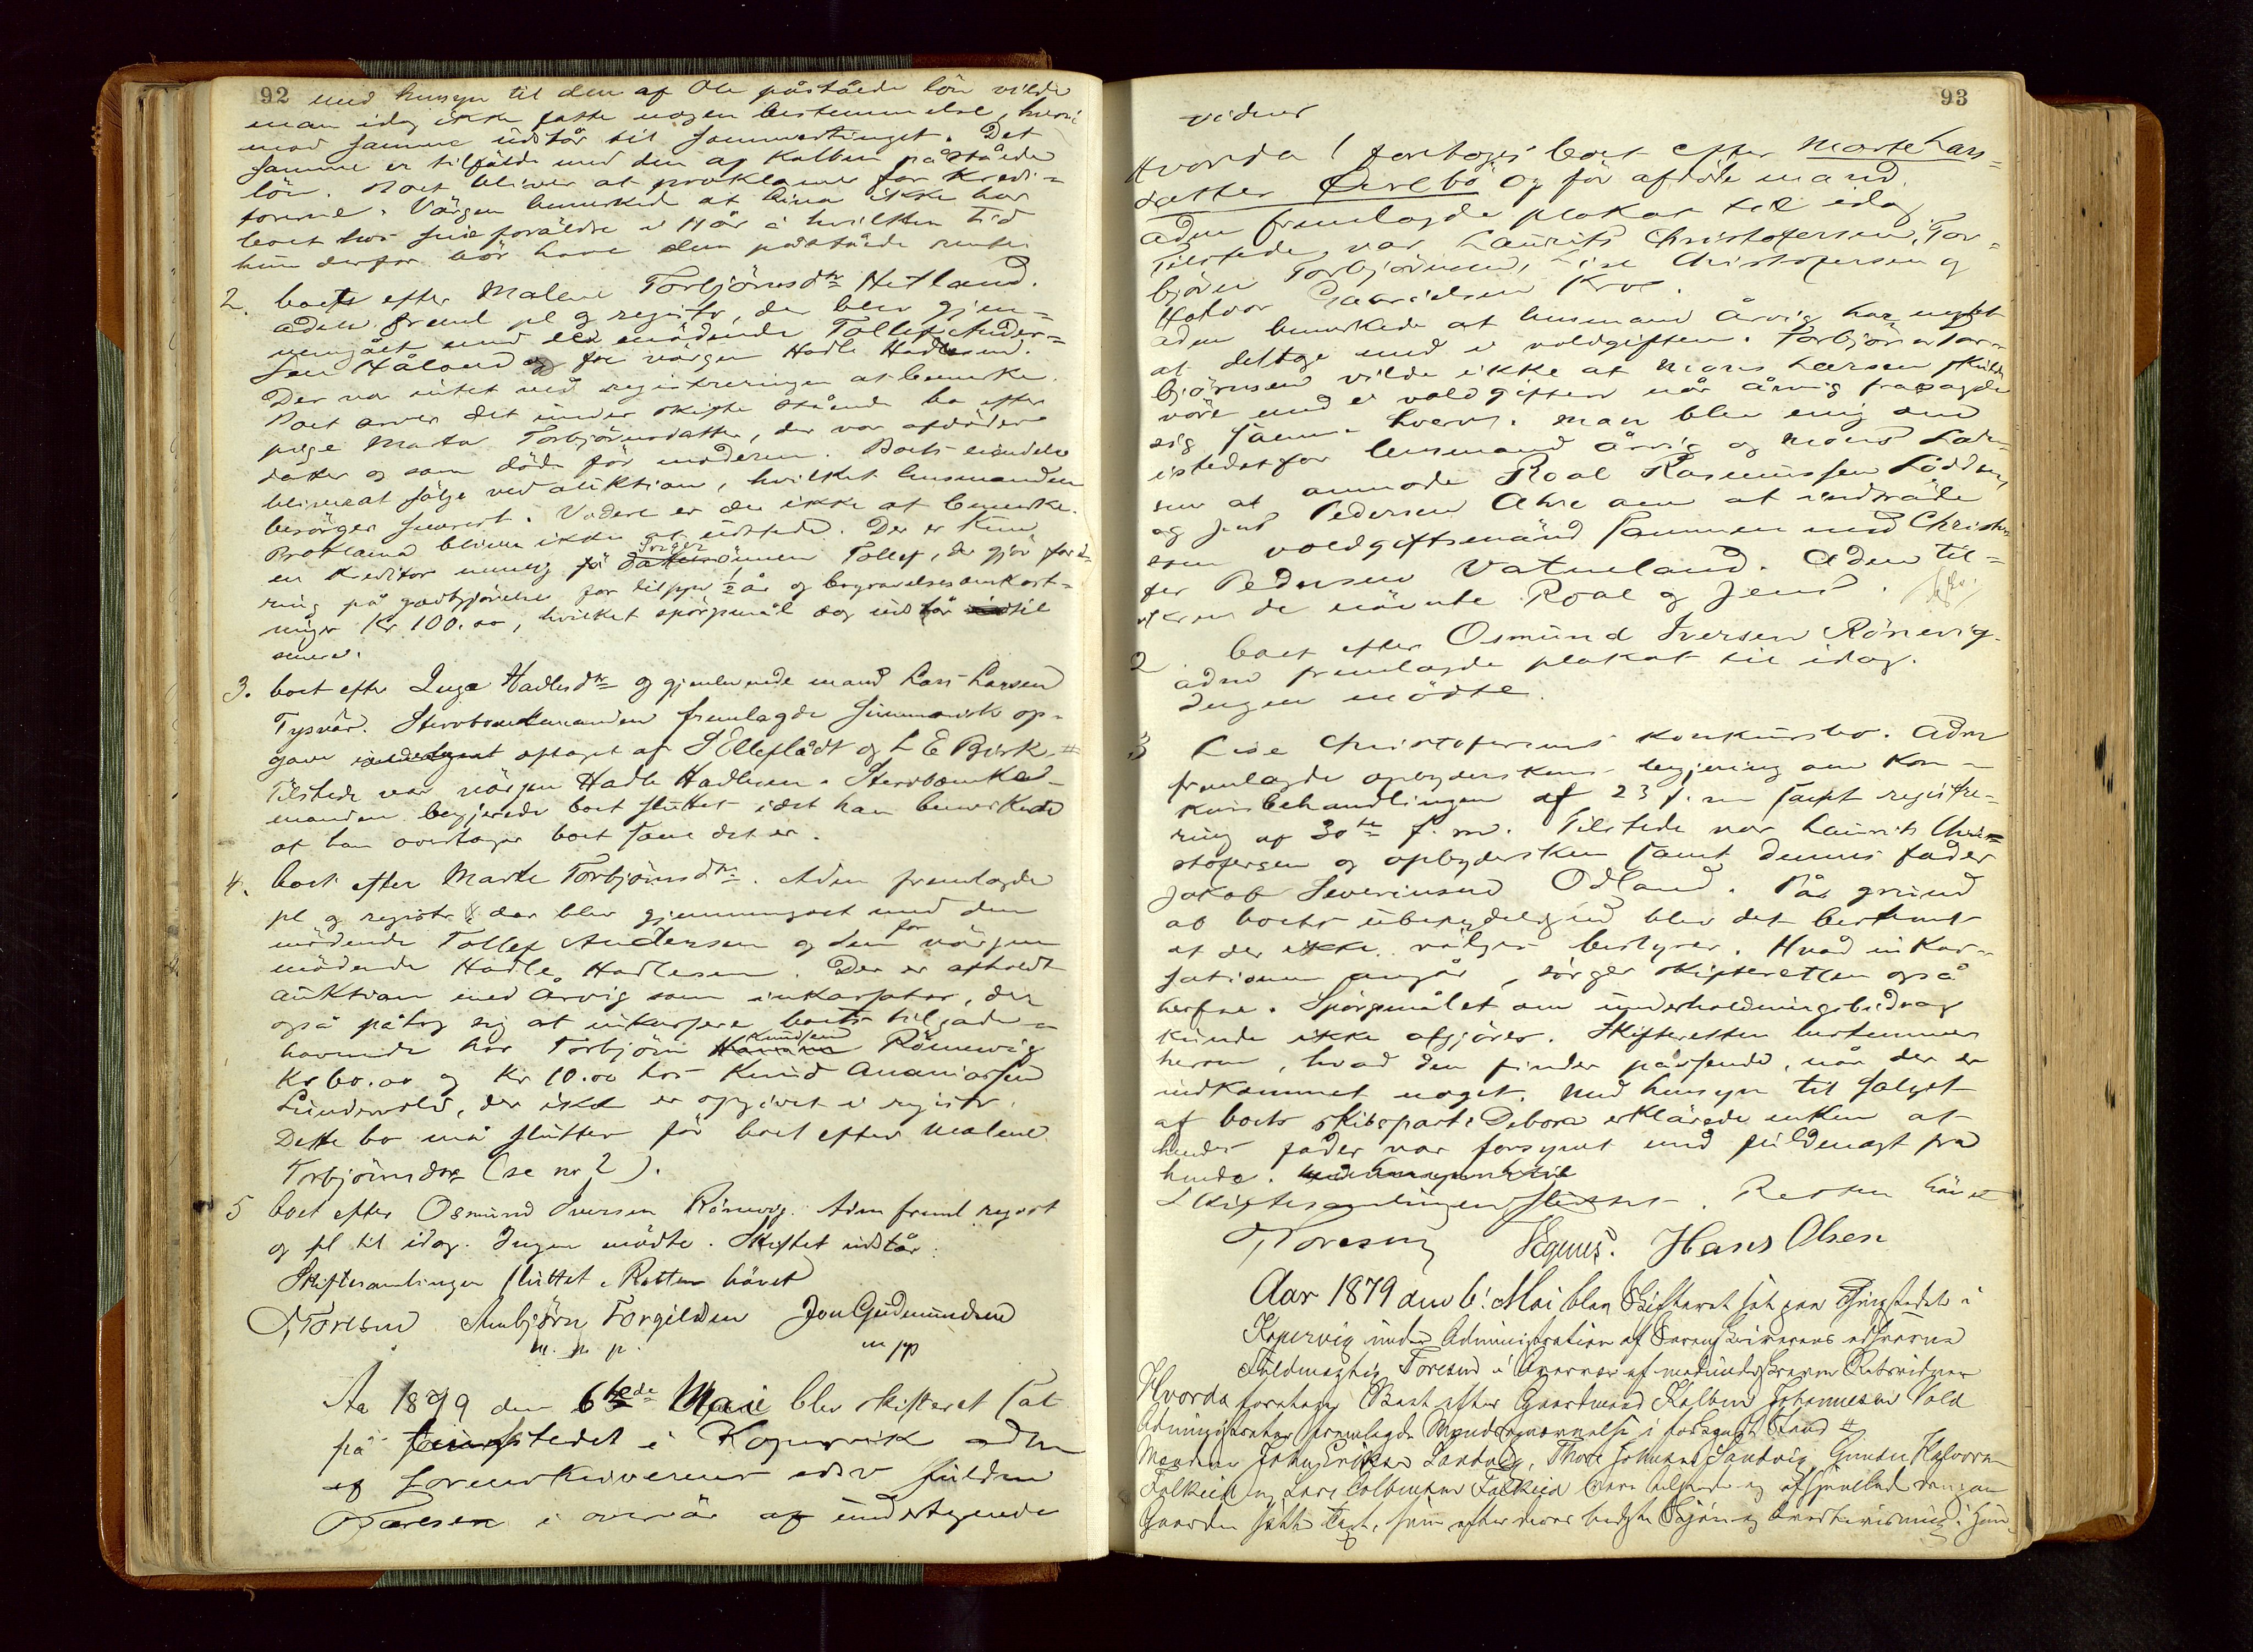 92 med hensyn til den af Ole påståede lön vilde
man idag ikke fatte nogen bestemmelse, hvori
mod samme udstår til sommertinget. Det
samme er tilfälde med den af Kolben påståede
lön. Boet bliver at proklamere for kredi-
torerne. Värgen bemerked at Lina ikke har
boet hos sine foräldre i 11 år i hvilken tid
hun derfor bör have den påståede rente.
2. boets efter Malene Torbjörnsdtr Hetland.
adm. freml pl og registr, der blev gjen-
nemgået med de mödende Tollef Ander-
sen Håland og for värgen Hadle Hadlesend.
Der var intet ved registreringen at bemerke.
Boet arver det under skifte stående bo efter
pige Marta Torbjörnsdatter, der var afdödes
datter og som döde för moderen. Boets eiendele
bliver at sälge ved auktion, hvilket lensmanden
besörger snarest. Videre er der ikke at bemerke.
Proklama bliver ikke at udstede. Der er kun
en kreditor nemlig Sviger sönnen Tollef, der gjör ford-
ring på godtgjörelse for tilsyn 1/2 år og begravelsesomkost-
ninger Kr 100.00, hvilket spörgsmål dog udstår til
senere.
3. boet efter Inga Hadlesdtr og gjenlevende mand Lars Larsen
Tysvär. Stervboenkemanden fremlagde summarisk op-
gave optaget af S Elleflådt og L E Birk #
Tilstede var värgen Hadle Hadlesen. Stervboenke-
manden begjerede boet sluttet idet han bemerkede
at han overtager boet som det er.
4. boet efter Marte Torbjörnsdtr. Adm fremlagde
pl og registr der blev gjennemgået med den
mödende Tollef Andersen og den for värgen
mödende Hadle Hadlesen. Der er afholdt
auktion med Årvig som inkassator, der
også påtog sig at inkassere boets tilgode-
havende hos Torbjörn Knudsen Rönevig
Kr 60.00 og Kr 10.00 hos Knud Ananiassen
Lundevold, der ikke er opgivet i registr.
Dette bo må sluttes för boet efter Malene
Torbjörnsdtr (se nr 2).
5 boet efter Osmund Iversen Rönevig. Adm freml regist
og pl til idag. Ingen mödte. Skiftet udstår.
Skiftesamlingen sluttet. Retten hävet
Toresen Anbjörn Torgilsen Jon Gudmundsen
m. p. m pp
Aa 1879 den 6te Mai blev skifteret sat
på tingstedet i Kopervik adm
af Sorenskriverens edsv fuldm
Toresen i overvär af undertegnede
93
vidner
Hvorda 1 foretoges boet efter Marte Lars-
datter Öirebö og för afdöde mand.
Adm fremlagde plakat til idag
Tilstede var Laurits Christofersen, Tor-
björn Torbjörnsen, Lise Christofersen og
Halvor Gabrielsen Kroe.
Adm bemerkede at lensmand Årvig har negtet
at deltage med i voldgiften. Torbjörn Tor-
björnsen vilde ikke at Mons Larsen skulde
väre med i voldgiften når Årvig frasagde
sig samme hverv. Man blev enig om
istedetfor lensmand Årvig og Mons Lar-
sen at anmode Roal Rasmussen Lödden,
og Jens Pedersen Ahre om at indträde
som voldgiftsmänd sammen med Christof-
fer Pedersen Vatneland. Adm til-
skrev de nävnte Roal og Jens.
2. boet efter Osmund Iversen Rönevig.
adm fremlagde plakat til idag.
Ingen mödte.
3 Lise Christofersens konkursbo. Adm
fremlagde opbyderskens begjering om kon-
kursbehandlingen af 23 f. m samt registre-
ring af 30te f. m. Tilstede var Laurits Chri-
stofersen og opbydersken samt dennes fader
Jakob Severinsen Odland. På grund
ab boets ubetydelighed blev det bestemt
at der ikke välges bestyrer. Hvad inkas-
sationen angår, sörger skifteretten også
herfor. Spörgsmålet om underholdningsbidrag
kunde ikke afgjöres. Skifteretten bestemmer
herom, hvad den finder passende, når der er
indkommet noget. Med hensyn til salget
af boets skibspart i Debora erklärede enken at
hendes fader var forsynet med fuldmagt fra
hende.
Skiftesamlingen sluttet. Retten hävet
Toresen Hans Olsen
Aar 1879 den 6. Mai blev Skifteret sat paa Thingstedet i
Kopervig under Administration af Sorenskriverens edsvorne
Fuldmægtig Toresen i Overvær af medunderskrevne Retsvidner
Hvorda foretoges Boet efter Gaardmand Kolben Johannesen Vold
Administrator fremlagde Mændsopnævnelse i forkyndt Stand #
Mændene John Eriksen Sandvig, Thore Johnsen Sandvig, Gunder Halvorsen
Falkeid og Lars Colbensen Falkeid vare tilstede og afhjemlede den paa
Gaarden satte Taxt, som efter deres bedste Skjøn og Overbevisning. Hun-